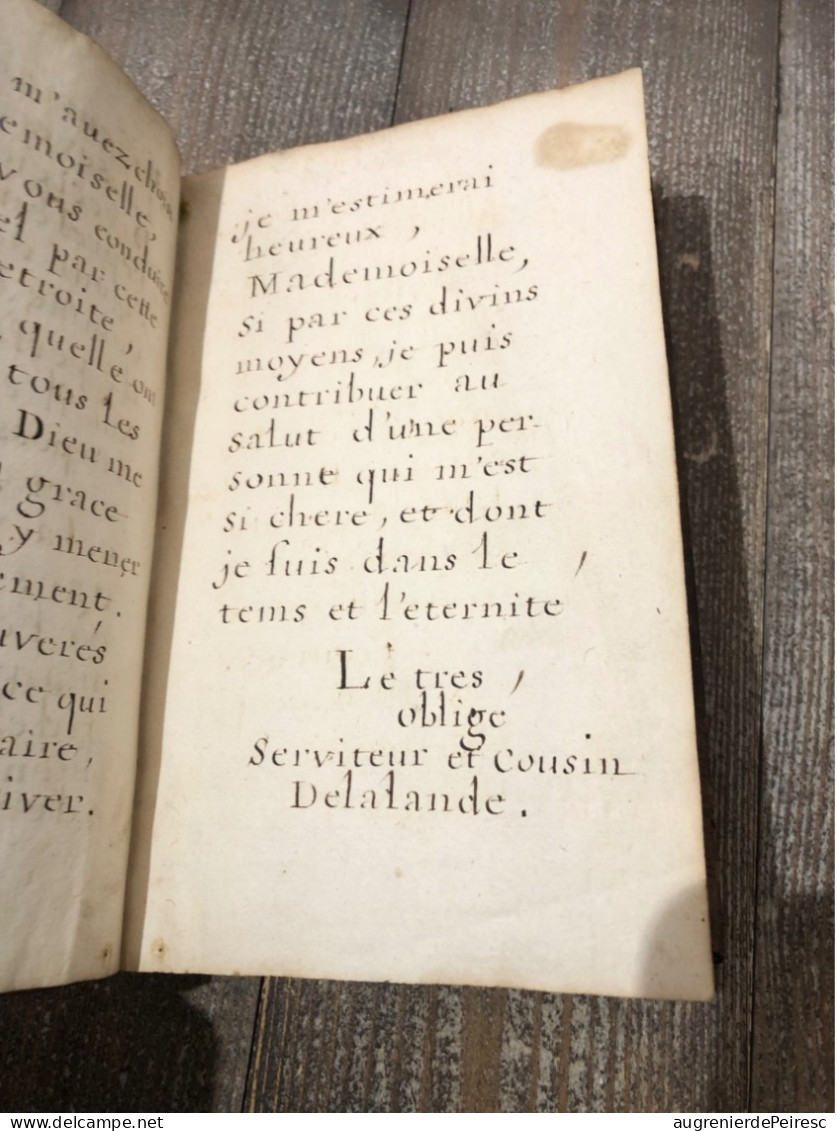 m'auez choisi
emoiselle,
vous conduire
el par cette
etroite,
quelle ont
tous les
Dieu me
grace
y mener
ement.
uverés
ce qui
aire,
iver.
je m'estimerai
heureux,
Mademoiselle,
si par ces divins
moyens, je puis
contribuer au
salut d'une per-
sonne qui m'est
si chere, et dont
je suis dans le
tems et l'eternité
Le tres
obligé
Serviteur et Cousin
Delalande.
augrenierdePeiresc